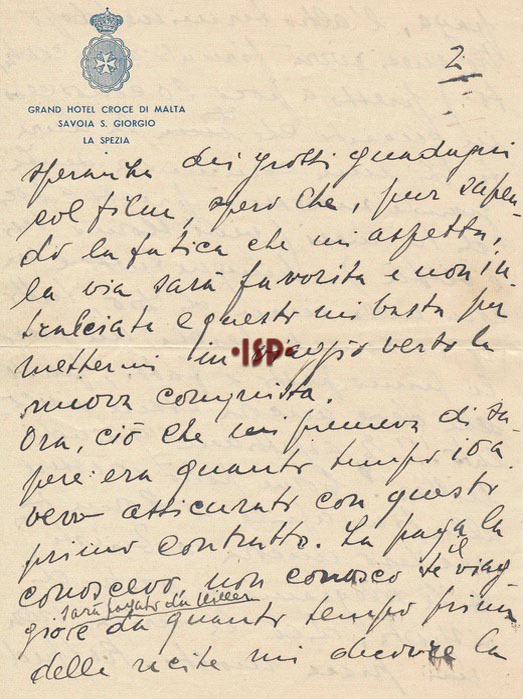 2
GRAND HOTEL CROCE DI MALTA
SAVOIA S. GIORGIO
LA SPEZIA
dei grossi guadagni
col film, spero che, pur sapen-
do la fatica che mi aspetta,
la via sarà favorita e non in-
tralciata e questo mi basta per
mettermi in viaggio verso la
nuova conquista.
Ora, ciò che mi premeva di sa-
pere era quanto tempo io a
vevo assicurato con questo
primo contratto. La paga la
conoscevo, non conosco se il viag
sarà pagato da
gio e da quanto tempo prima
delle recite mi decorre la
ISP